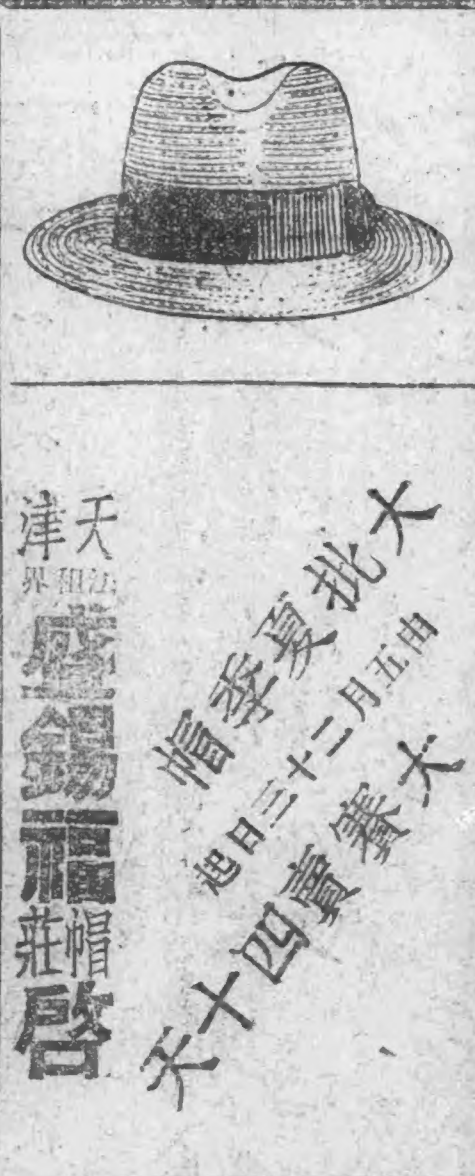 大批夏季帽
由五月二十三日起
大賽賣四十天
天津
法租界
盛錫福
帽莊
啓